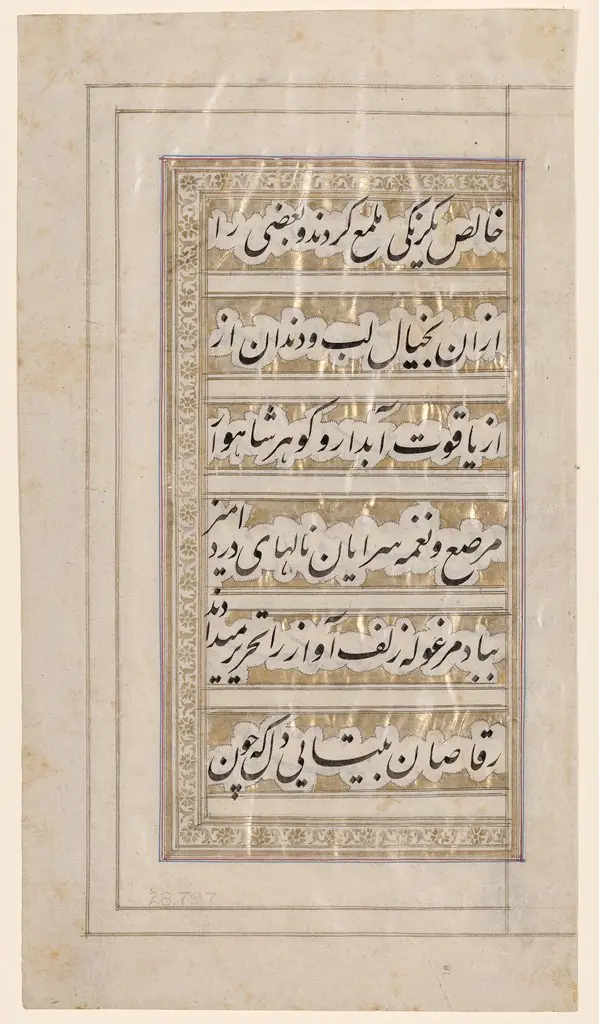 خالص یکرنکی ملمع کردند و بعضی را
ازان بخیال لب و دندان از
از یاقوت آبدار و کوهر شاهوار
مرصع و نغمه سرایان نالهای درد امیز
بباد مرغوله زلف آواز را تحریر میدادند
رقاصان بیتابی دل که چون
28.797